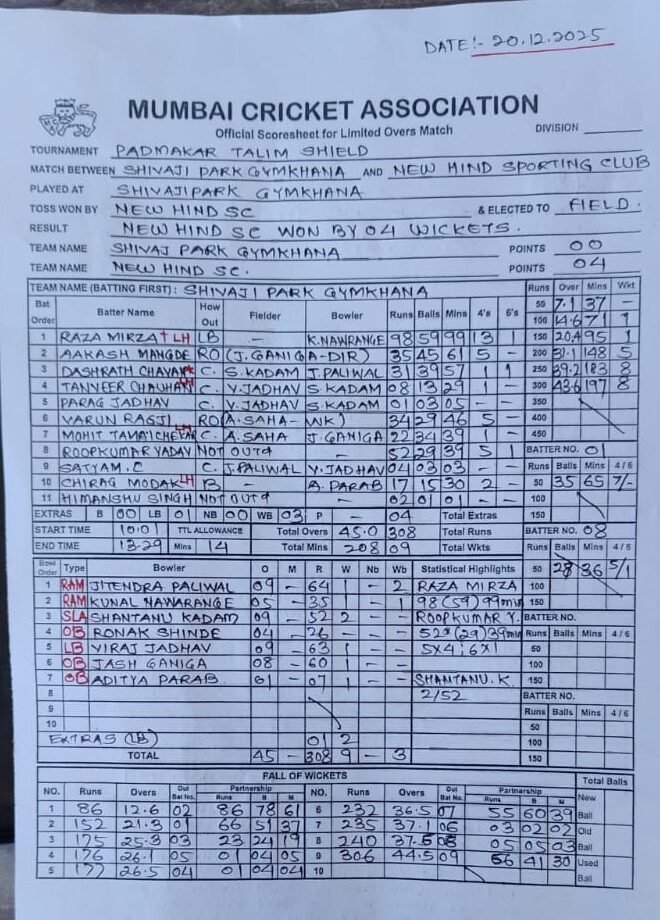 DATE:- 20.12.2025
MUMBAI CRICKET ASSOCIATION
Official Scoresheet for Limited Overs Match
DIVISION
TOURNAMENT PADMAKAR TALIM SHIELD
MATCH BETWEEN SHIVAJI PARK GYMKHANA AND NEW HIND SPORTING CLUB
PLAYED AT SHIVAJI PARK GYMKHANA
TOSS WON BY NEW HIND SC & ELECTED TO FIELD.
RESULT NEW HIND SC WON BY 04 WICKETS.
TEAM NAME SHIVAJI PARK GYMKHANA POINTS 00
TEAM NAME NEW HIND SC. POINTS 04
TEAM NAME (BATTING FIRST): SHIVAJI PARK GYMKHANA Runs Over Mins Wkt
50 7.1 37 -
Bat Order Batter Name How Out Fielder Bowler Runs Balls Mins 4's 6's 100 14.6 71 1
1 RAZA MIRZA † LH LB K.NAWRANGE 98 59 99 13 1 150 20.4 95 1
2 AAKASH MANGDE RO (J.GANIGA-DIR) 35 45 61 5 - 200 31.1 148 5
3 DASHRATH CHAVAN* C. S.KADAM J.PALIWAL 31 39 57 1 1 250 39.2 183 8
4 TANVEER CHAUHAN LH C. V.JADHAV S.KADAM 08 13 29 1 - 300 43.6 197 8
5 PARAG JADHAV C. V.JADHAV S.KADAM 01 03 05 - - 350
6 VARUN RAGJI RO (A.SAHA - WK) 34 29 46 5 - 400
7 MOHIT TAMAICHEKAR LH C. A.SAHA J.GANIGA 22 34 39 1 - 450
8 ROOPKUMAR YADAV NOT OUT - 52 29 39 5 1 BATTER NO. 01
9 SATYAM.C C. J.PALIWAL V.JADHAV 04 03 03 - - Runs Balls Mins 4/6
10 CHIRAG MODAK LH B - A.PARAB 17 15 30 2 - 50 35 65 7/-
11 HIMANSHU SINGH NOT OUT - 02 01 01 - - 100
EXTRAS B 00 LB 01 NB 00 WB 03 P - 04 Total Extras 150
START TIME 10:01 TTL ALLOWANCE Total Overs 45.0 308 Total Runs BATTER NO. 08
END TIME 13.29 Mins 14 Total Mins 208 09 Total Wkts Runs Balls Mins 4/6
Bowl Order Type Bowler O M R W Nb Wb Statistical Highlights 50 28 36 5/1
1 RAM JITENDRA PALIWAL 09 - 64 1 - 2 RAZA MIRZA 100
2 RAM KUNAL NAWARANGE 05 - 35 - 1 98 (59) 99min 150
3 SLA SHANTANU KADAM 09 - 52 2 - - ROOPKUMAR Y. BATTER NO.
4 OB RONAK SHINDE 04 - 26 - - - 52* (29) 39min Runs Balls Mins 4/6
5 LB VIRAJ JADHAV 09 - 63 1 - - 5X4; 6X1 50
6 OB JASH GANIGA 08 - 60 1 - - 100
7 OB ADITYA PARAB 01 - 07 1 - - SHANTANU.K 150
8 2/52 BATTER NO.
9 Runs Balls Mins 4/6
10 50
EXTRAS (LB) 01 2 100
TOTAL 45 - 308 9 - 3 150
FALL OF WICKETS Total Balls
NO. Runs Overs Out Bat No. Partnership Runs B M NO. Runs Overs Out Bat No. Partnership Runs B M New
1 86 12.6 02 86 78 61 6 232 36.5 07 55 60 39 Ball
2 152 21.3 01 66 51 37 7 235 37.1 06 03 02 02 Old
3 175 25.3 03 23 24 19 8 240 37.6 05 05 03 Ball
4 176 26.1 05 01 04 05 9 306 44.5 09 66 41 30 Used
5 177 26.5 04 01 04 04 10 Ball